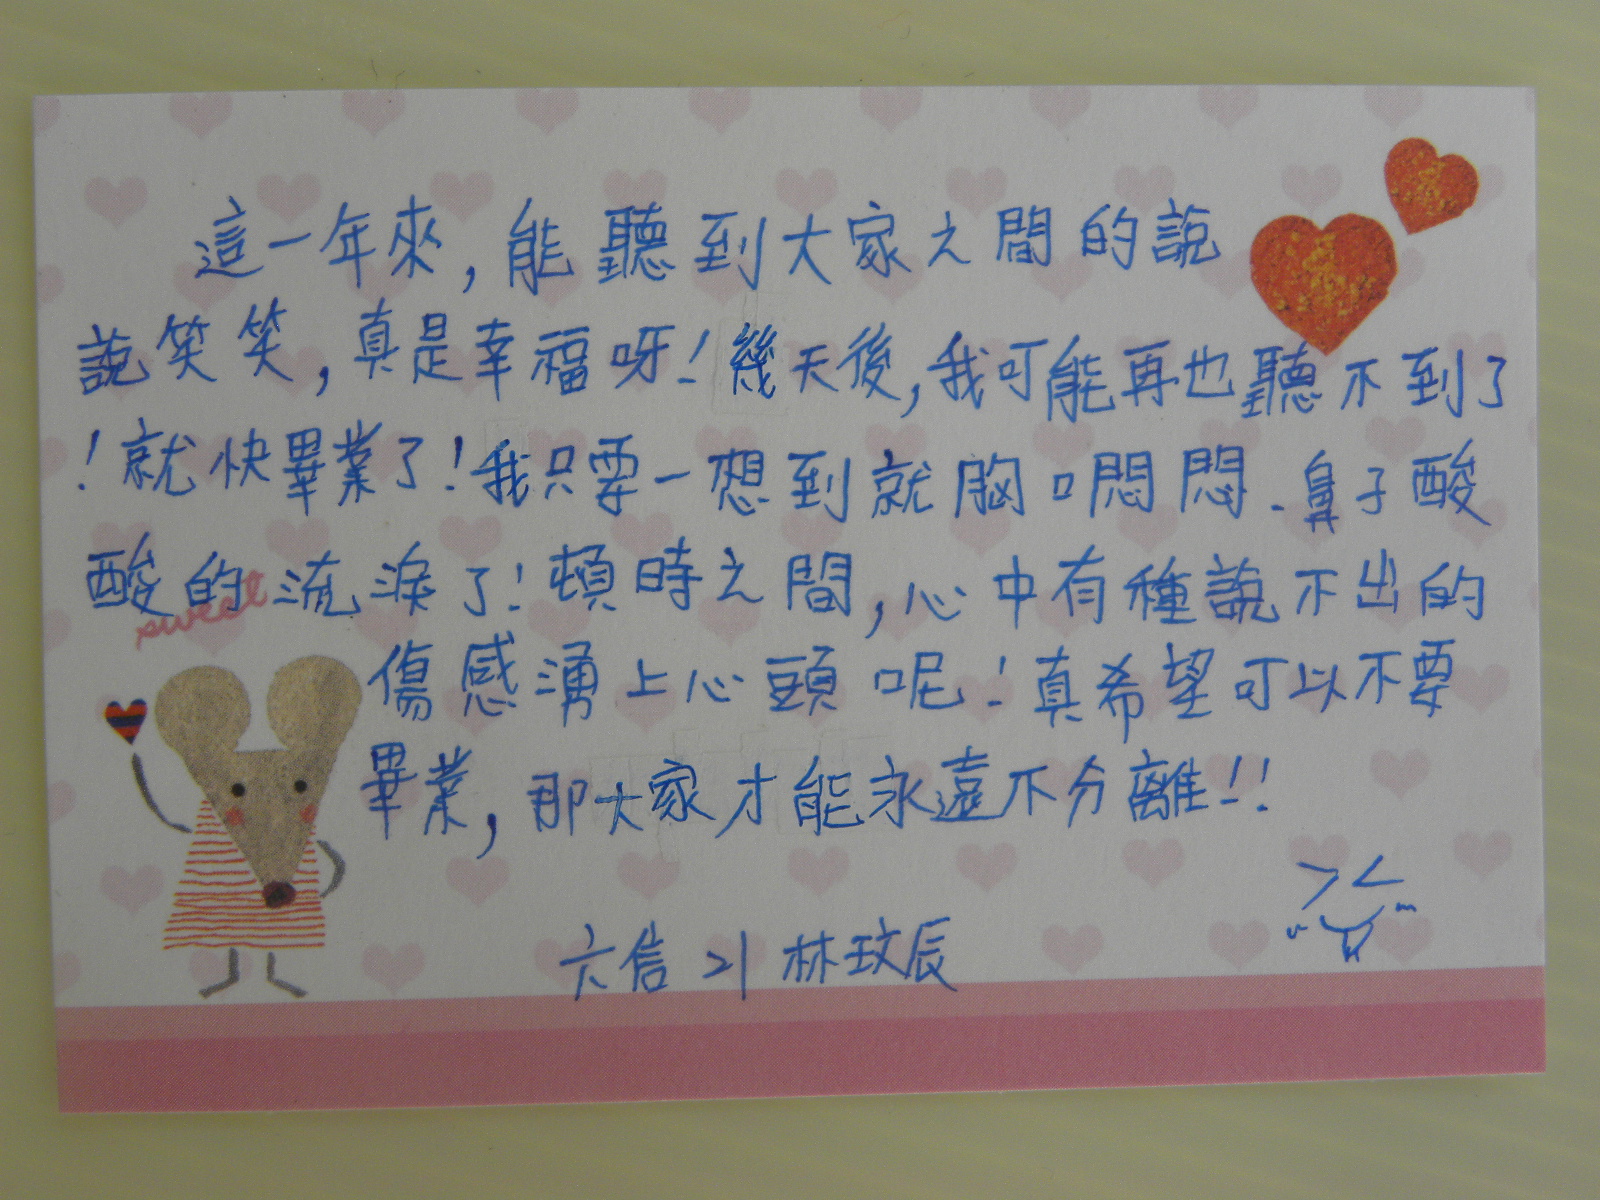 這一年來，能聽到大家之間的說
說笑笑，真是幸福呀！幾天後，我可能再也聽不到了
！就快畢業了！我只要一想到就胸口悶悶、鼻子酸
酸的流淚了！頓時之間，心中有種說不出的
sweet
傷感湧上心頭呢！真希望可以不要
畢業，那大家才能永遠不分離！！
六信 21 林玟辰